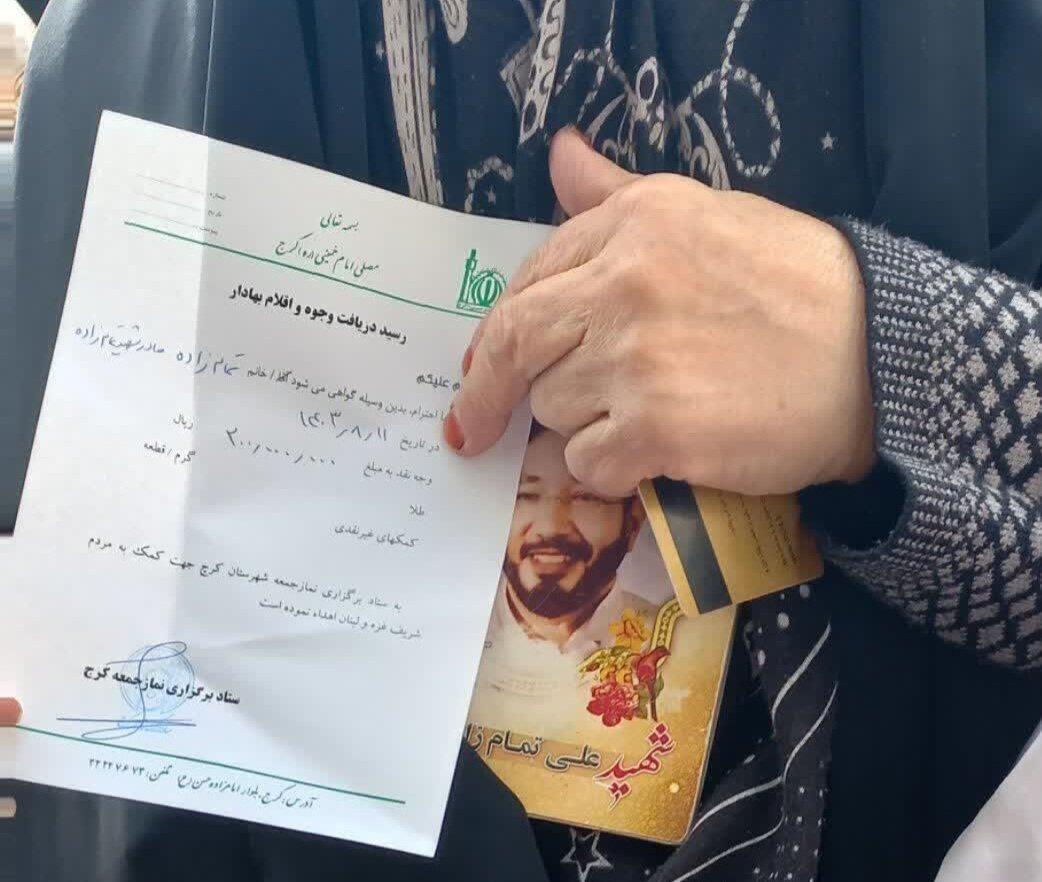 بسمه تعالی
مصلی امام خمینی (ره) کرج
شماره
تاریخ
پیوست
رسید دریافت وجوه و اقلام بهادار
علیکم
احترام، بدین وسیله گواهی می شود آقا/خانم تمام زاده مادر شهید تمام زاده
در تاریخ ۱۴۰۳/۸/۱۱
وجه نقد به مبلغ ۳۰۰/۰۰۰/۰۰۰ ریال
طلا گرم / قطعه
کمکهای غیرنقدی
به ستاد برگزاری نمازجمعه شهرستان کرج جهت کمک به مردم
شریف غزه و لبنان اهداء نموده است
ستاد برگزاری نمازجمعه کرج
آدرس: کرج، بلوار امامزاده حسن (ع) تلفن: ۲۲۲۲۷۶۷۳
شهید علی تمام